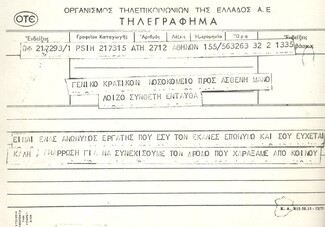 ΟΤΕ
ΟΡΓΑΝΙΣΜΟΣ ΤΗΛΕΠΙΚΟΙΝΩΝΙΩΝ ΤΗΣ ΕΛΛΑΔΟΣ Α.Ε
ΤΗΛΕΓΡΑΦΗΜΑ
Ἐνδείξεις Γραφεῖον Καταγωγῆς Ἀριθμός Λέξεις Ἡμερομηνία Ὥρα Ἐνδείξεις
217293/1 PSIH 217315 ATH 2712 ΑΘΗΝΩΝ 155/563263 32 2 1335
ΓΕΝΙΚΟ ΚΡΑΤΙΚΟΝ ΝΟΣΟΚΟΜΕΙΟ ΠΡΟΣ ΑΣΘΕΝΗ ΜΑΝΟ
ΛΟΙΖΟ ΣΥΝΘΕΤΗ ΕΝΤΑΥΘΑ
ΕΙΜΑΙ ΕΝΑΣ ΑΝΩΝΥΜΟΣ ΕΡΓΑΤΗΣ ΠΟΥ ΕΣΥ ΤΟΝ ΕΚΑΝΕΣ ΕΠΩΝΥΜΟ ΚΑΙ ΣΟΥ ΕΥΧΕΤΑΙ
ΚΑΛΗ ΑΝΑΡΡΩΣΗ ΓΙΑ ΝΑ ΣΥΝΕΧΙΣΟΥΜΕ ΤΟΝ ΔΡΟΜΟ ΠΟΥ ΧΑΡΑΞΑΜΕ ΑΠΟ ΚΟΙΝΟΥ